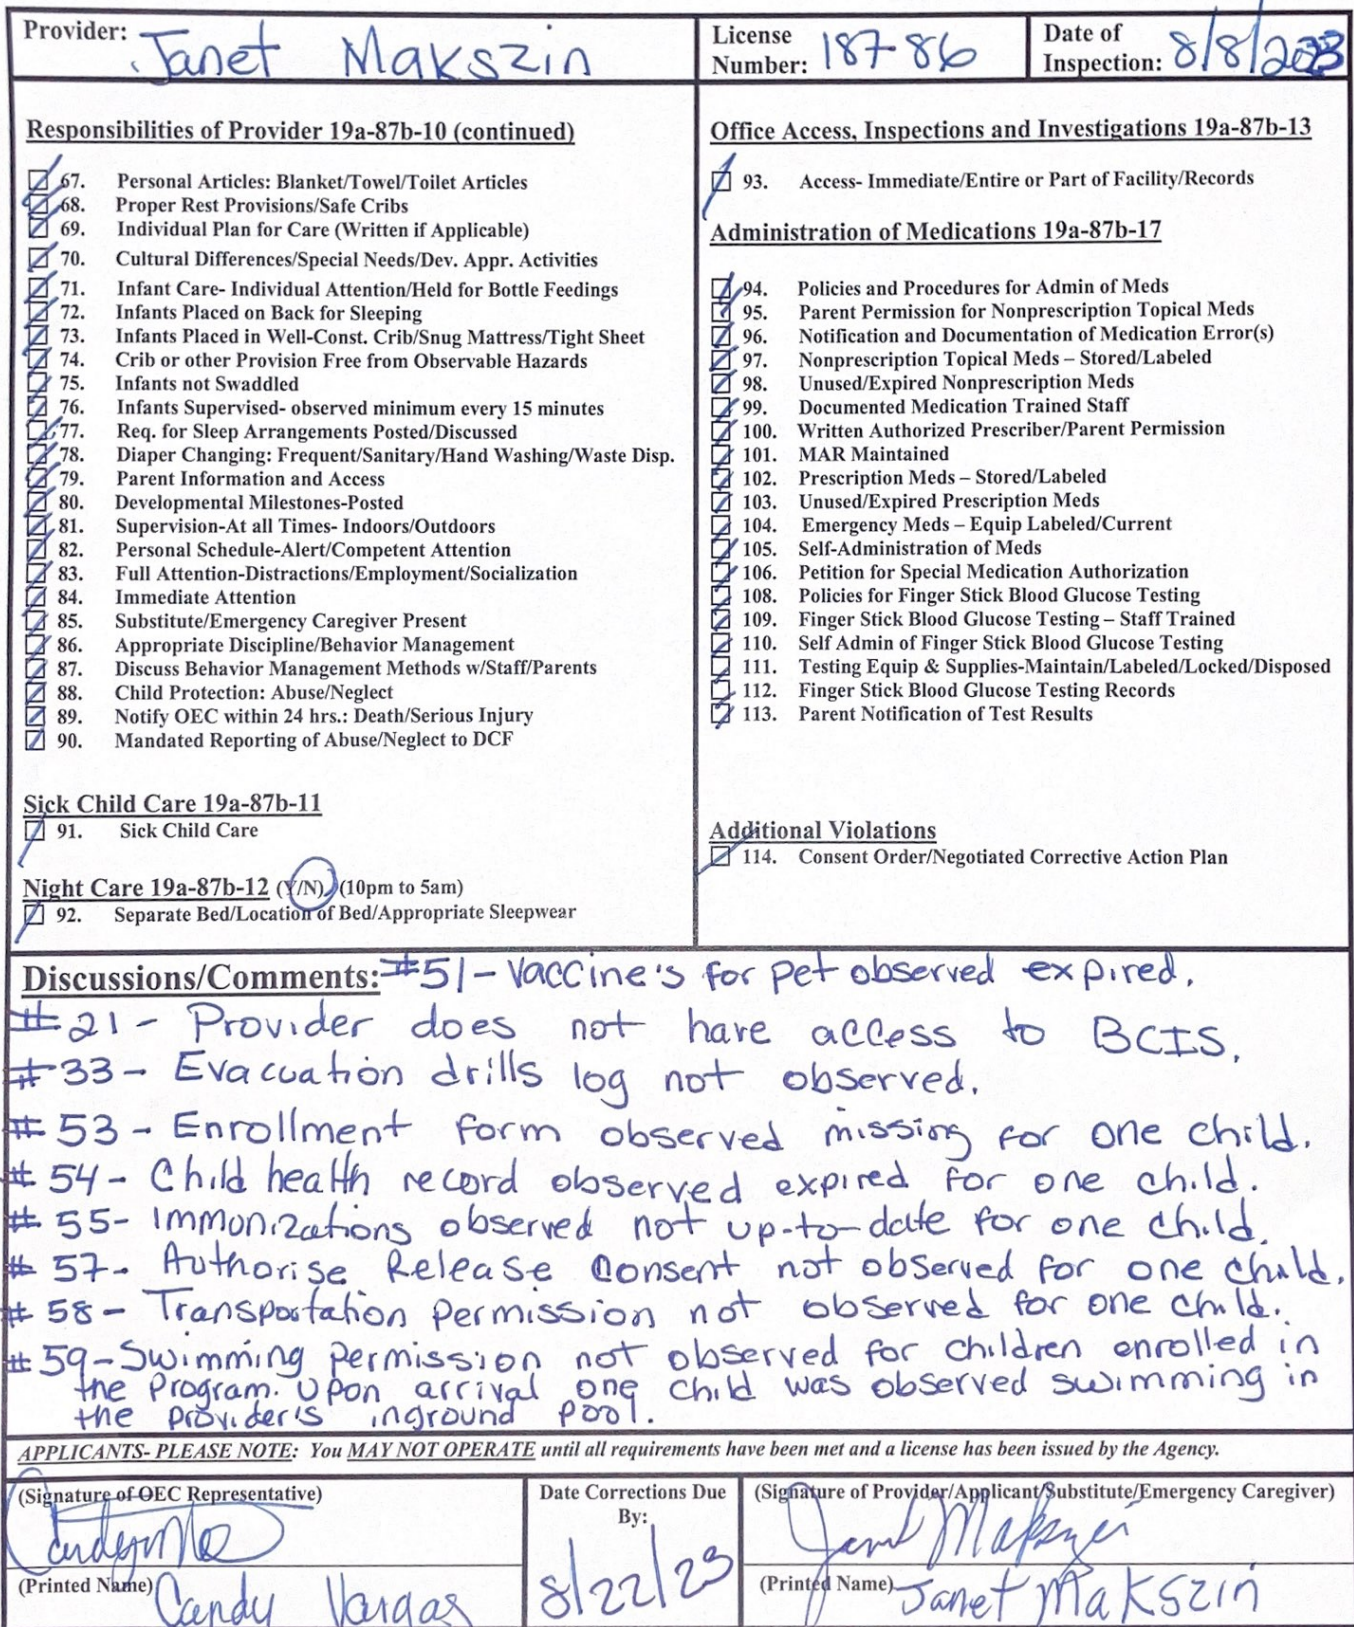 Provider: Janet Makszin
License Number: 18786
Date of Inspection: 8/8/2023
Responsibilities of Provider 19a-87b-10 (continued)
67. Personal Articles: Blanket/Towel/Toilet Articles
68. Proper Rest Provisions/Safe Cribs
69. Individual Plan for Care (Written if Applicable)
70. Cultural Differences/Special Needs/Dev. Appr. Activities
71. Infant Care- Individual Attention/Held for Bottle Feedings
72. Infants Placed on Back for Sleeping
73. Infants Placed in Well-Const. Crib/Snug Mattress/Tight Sheet
74. Crib or other Provision Free from Observable Hazards
75. Infants not Swaddled
76. Infants Supervised- observed minimum every 15 minutes
77. Req. for Sleep Arrangements Posted/Discussed
78. Diaper Changing: Frequent/Sanitary/Hand Washing/Waste Disp.
79. Parent Information and Access
80. Developmental Milestones-Posted
81. Supervision-At all Times- Indoors/Outdoors
82. Personal Schedule-Alert/Competent Attention
83. Full Attention-Distractions/Employment/Socialization
84. Immediate Attention
85. Substitute/Emergency Caregiver Present
86. Appropriate Discipline/Behavior Management
87. Discuss Behavior Management Methods w/Staff/Parents
88. Child Protection: Abuse/Neglect
89. Notify OEC within 24 hrs.: Death/Serious Injury
90. Mandated Reporting of Abuse/Neglect to DCF
Sick Child Care 19a-87b-11
91. Sick Child Care
Night Care 19a-87b-12 (Y/N) (10pm to 5am)
92. Separate Bed/Location of Bed/Appropriate Sleepwear
Office Access, Inspections and Investigations 19a-87b-13
93. Access- Immediate/Entire or Part of Facility/Records
Administration of Medications 19a-87b-17
94. Policies and Procedures for Admin of Meds
95. Parent Permission for Nonprescription Topical Meds
96. Notification and Documentation of Medication Error(s)
97. Nonprescription Topical Meds – Stored/Labeled
98. Unused/Expired Nonprescription Meds
99. Documented Medication Trained Staff
100. Written Authorized Prescriber/Parent Permission
101. MAR Maintained
102. Prescription Meds – Stored/Labeled
103. Unused/Expired Prescription Meds
104. Emergency Meds – Equip Labeled/Current
105. Self-Administration of Meds
106. Petition for Special Medication Authorization
108. Policies for Finger Stick Blood Glucose Testing
109. Finger Stick Blood Glucose Testing – Staff Trained
110. Self Admin of Finger Stick Blood Glucose Testing
111. Testing Equip & Supplies-Maintain/Labeled/Locked/Disposed
112. Finger Stick Blood Glucose Testing Records
113. Parent Notification of Test Results
Additional Violations
114. Consent Order/Negotiated Corrective Action Plan
Discussions/Comments: #51 - Vaccine's for pet observed expired.
#21 - Provider does not have access to BCIS.
#33 - Evacuation drills log not observed.
#53 - Enrollment form observed missing for one child.
#54 - Child health record observed expired for one child.
#55 - Immunizations observed not up-to-date for one child.
#57 - Authorise Release Consent not observed for one child.
#58 - Transportation Permission not observed for one child.
#59 - Swimming permission not observed for children enrolled in
the program. Upon arrival one child was observed swimming in
the provider's inground pool.
APPLICANTS- PLEASE NOTE: You MAY NOT OPERATE until all requirements have been met and a license has been issued by the Agency.
(Signature of OEC Representative)
(Printed Name) Candy Vargas
Date Corrections Due By:
8/22/23
(Signature of Provider/Applicant/Substitute/Emergency Caregiver)
Janet Makszin
(Printed Name) Janet Makszin